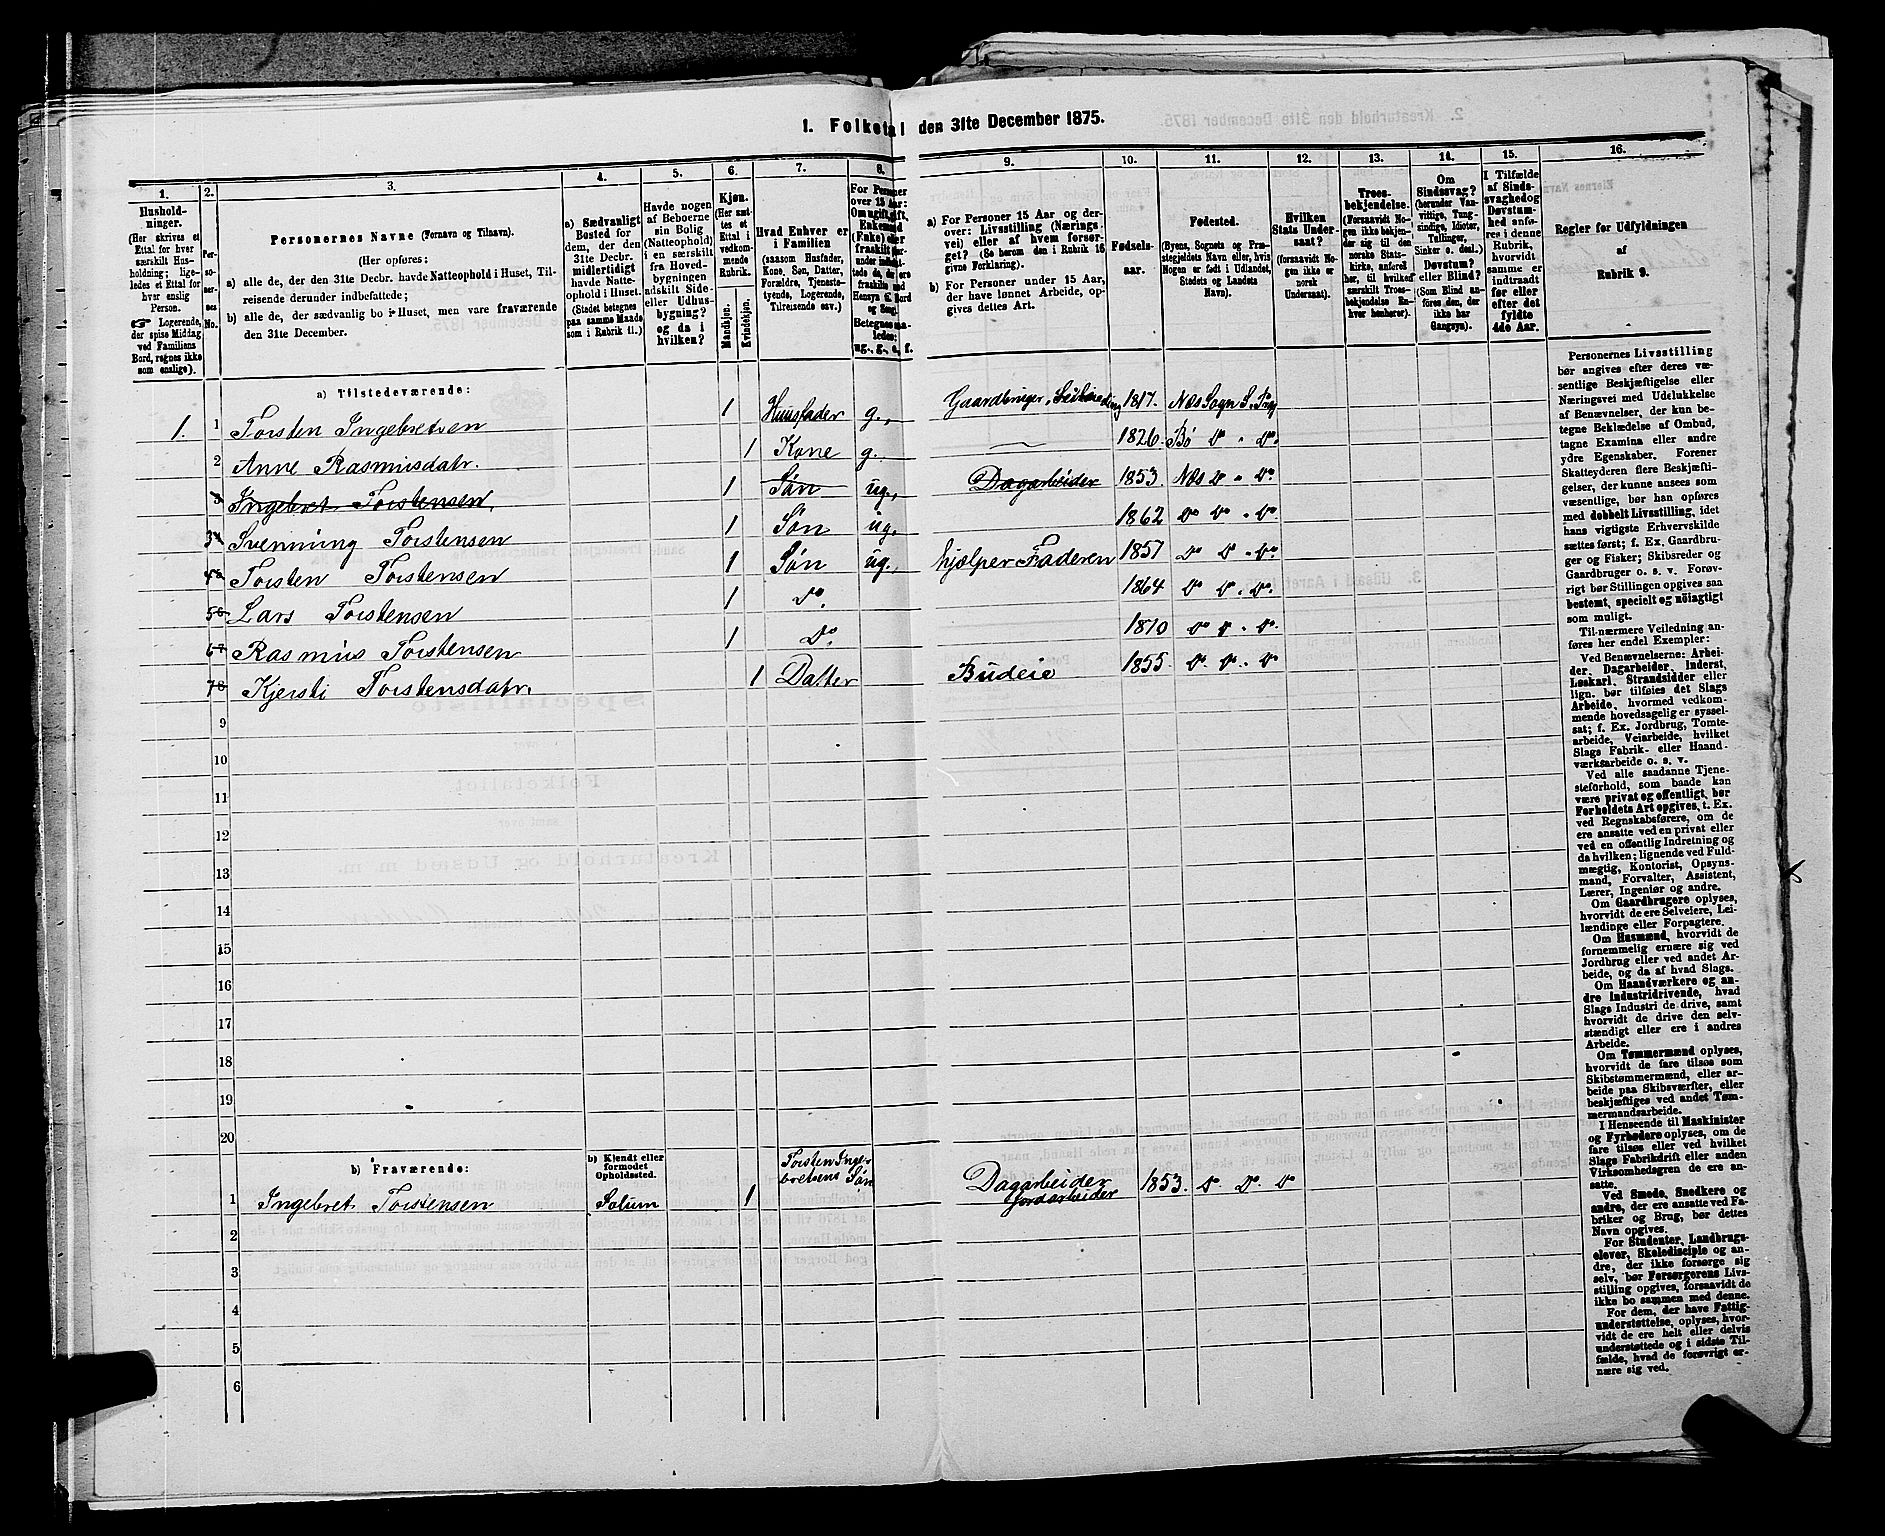 1. Folketal den 31te December 1875.
1. 2. 3. 4. 5. 6. 7. 8. 9. 10. 11. 12. 13. 14. 15. 16.
Hushold-
ninger.
(Her skrives et
Ettal for hver
særskilt Hus-
holdning; lige-
ledes et Ettal for
hver enslig
Person.
☞ Logerende,
der spise Middag
ved Familiens
Bord, regnes ikke
som enslige).
Per-
so-
ner-
nes
No.
Personernes Navne (Fornavn og Tilnavn).
(Her opføres:
a) alle de, der den 31te Decbr. havde Natteophold i Huset, Til-
reisende derunder indbefattede;
b) alle de, der sædvanlig bo i Huset, men vare fraværende
den 31te December.
a) Sædvanligt
Bosted for
dem, der den
31te Decbr.
midlertidigt
havde Natte-
ophold i Huset.
(Stedet betegnes
paa samme Maade
som i Rubrik 11.)
Havde nogen
af Beboerne
sin Bolig
(Natteophold)
i en særskilt
fra Hoved-
bygningen
adskilt Side-
eller Udhus-
bygning?
og da i
hvilken?
Kjøn.
(Her sæt-
tes et
Ettal i
vedkom-
mende
Rubrik.
Mandkjøn.
Kvindekjøn.
Hvad Enhver er
i Familien
(saasom Husfader,
Kone, Søn, Datter,
Forældre, Tjeneste-
tyende, Logerende,
Tilreisende osv.)
For Personer
over 15 Aar:
Om ugift, gift,
Enkemand
(Enke) eller
fraskilt
Betegnes saa-
ledes:
ug., g., e., f.
a) For Personer 15 Aar og der-
over: Livsstilling (Nærings-
vei) eller af hvem forsør-
get? (Se herom den i Rubrik 16
givne Forklaring).
b) For Personer under 15 Aar,
der have lønnet Arbeide, op-
gives dettes Art.
Fødsels-
aar.
Fødested.
(Byens, Sognets og Præ-
stegjeldets Navn eller, hvis
Nogen er født i Udlandet,
Stedets og Landets
Navn).
Hvilken
Stats Under-
saat?
(forsaavidt No-
gen ikke er
norsk
Undersaat).
Troes-
bekjendelse.
(Forsaavidt No-
gen ikke bekjen-
der sig til den
norske Stats-
kirke, anføres
her, til hvilken
særskilt Troes-
bekjendelse En-
hver henhører).
Om
Sindssvag?
(herunder Van-
vittige, Tung-
sindige, Idioter,
Tullinger,
Sinker o. desl.)
Døvstum?
eller Blind?
(Som Blind an-
føres den, der
ikke har
Gangsyn).
I Tilfælde
af Sinds-
svaghed og
Døvstum-
hed anfø-
res i denne
Rubrik,
hvorvidt
samme er
indtraadt
før eller
efter det
fyldte
4de Aar.
Regler for Udfyldningen
af
Rubrik 9.
a) Tilstedeværende:
1. 1 Torsten Ingebretsen 1 Huusfader g., Gaardbruger, 1817. Næs Sogn
2 Anne Rasmusdatr. 1 Kone g. 1826 Bø Do. Do.
3 Ingebret Torstensen 1 Søn ug., Dagarbeider 1853 Næs Do. Do.
3 4 Svenning Torstensen 1 Søn ug. 1862 Do Do. Do.
4 5 Torsten Torstensen 1 Søn ug., hjælper Faderen 1857 Do Do. Do.
5 6 Lars Torstensen 1 Do. 1864 Do Do. Do.
6 7 Rasmus Torstensen 1 Do. 1870 Do Do. Do.
7 8 Kjersti Torstensdatr. 1 Datter Budeie 1855 Do. Do. Do
9
10
11
12
13
14
15
16
17
18
19
20
b) Fraværende:
b) Kjendt eller
formodet
Opholdssted.
1 Ingebret Torstensen Solum 1 Torsten Inge-
bretsens Søn Dagarbeider
Jordarbeider 1853. Do. Do. Do
2
3
4
5
6
Personernes Livsstilling
bør angives efter deres væ-
sentlige Beskjæftigelse eller
Næringsvei med Udelukkelse
af Benævnelser, der kun be-
tegne Beklædelse af Ombud,
tagne Examina eller andre
ydre Egenskaber. Forener
Skatteyderen flere Beskjæfti-
gelser, der kunne ansees som
væsentlige, bør han opføres
med dobbelt Livsstilling, idet
hans vigtigste Erhvervskilde
sættes først; f. Ex. Gaardbru-
ger og Fisker; Skibsreder og
Gaardbruger o. s. v. Forøv-
rigt bør Stillingen opgives saa
bestemt, specielt og nøiagtigt
som muligt.
Til nærmere Veiledning an-
føres her endel Exempler:
Ved Benævnelserne: Arbei-
der, Dagarbeider, Inderst,
Løskarl, Strandsidder eller
lign. bør tilføies det Slags
Arbeide, hvormed vedkom-
mende hovedsagelig er syssel-
sat; f. Ex. Jordbrug, Tomte-
arbeide, Veiarbeide, hvilket
Slags Fabrik- eller Haand-
værksarbeide o. s. v.
Ved alle saadanne Tjene-
steforhold, som baade kan
være privat og offentligt, bør
Forholdets Art opgives, t. Ex.
ved Regnskabsførere, om de
ere ansatte ved en privat eller
ved en offentlig Indretning og
da hvilken; lignende ved Fuld-
mægtig, Kontorist, Opsyns-
mand, Forvalter, Assistent,
Lærer, Ingeniør og andre.
Om Gaardbrugere oplyses,
hvorvidt de ere Selveiere, Lei-
lændinge eller Forpagtere.
Om Husmænd, hvorvidt de
fornemmelig ernære sig ved
Jordbrug eller ved andet Ar-
beide, og da af hvad Slags.
Om Haandværkere og an-
dre Industridrivende, hvad
Slags Industri de drive, samt
hvorvidt de drive den selv-
stændigt eller ere i andres
Arbeide.
Om Tømmermænd oplyses,
hvorvidt de fare tilsøs som
Skibstømmermænd, eller ar-
beide paa Skibsværfter, eller
beskjæftiges ved andet Tøm-
mermandsarbeide.
I Henseende til Maskinister
og Fyrbødere oplyses, om de
fare tilsøs eller ved hvilket
Slags Fabrikdrift eller anden
Virksomhedsgren de ere an-
satte.
Ved Smede, Snedkere og
andre, der ere ansatte ved Fa-
briker og Brug, bør dettes
Navn opgives.
For Studenter, Landbrugs-
elever, Skoledisciple og an-
dre, der ikke forsørge sig
selv, bør Forsørgerens Livs-
stilling opgives, forsaavidt de
ikke bo sammen med denne.
For dem, der have Fattig-
understøttelse, oplyses, hvor-
vidt de ere helt eller delvis
understøttede og i sidste Til-
fælde, hvad de forøvrigt er-
nære sig ved.